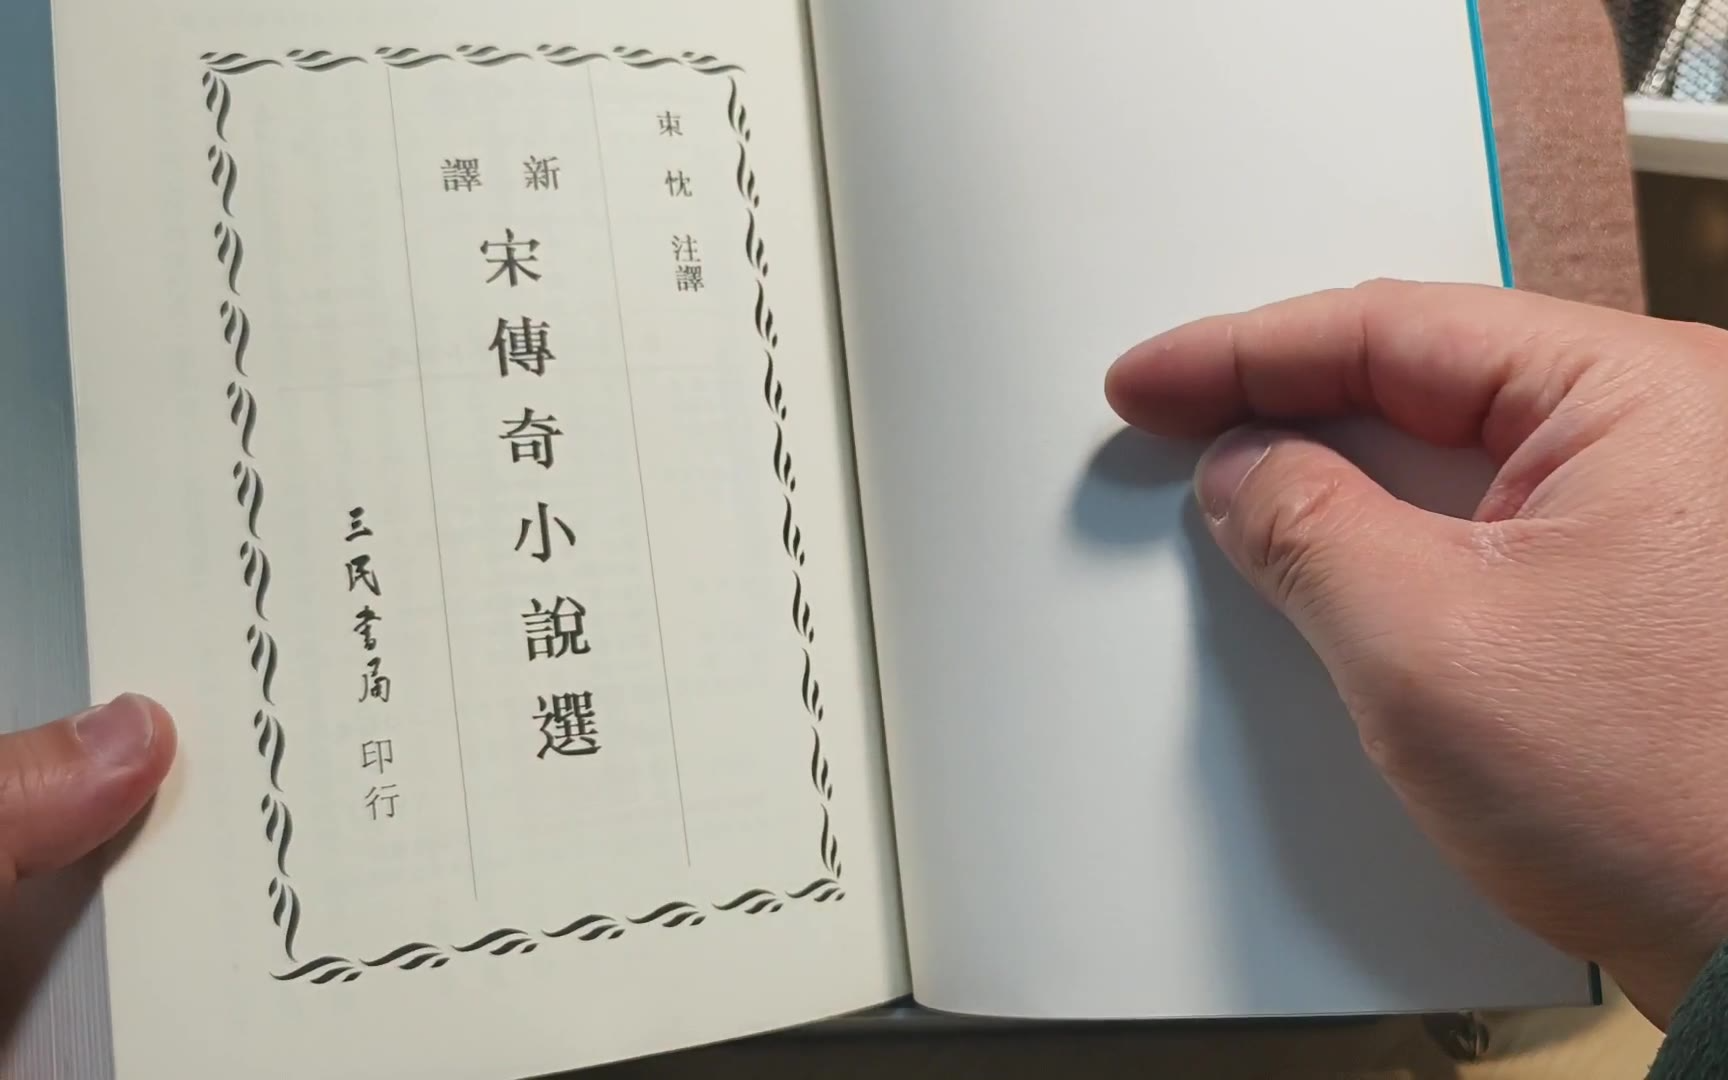 束忱 注譯
新譯
宋傳奇小說選
三民書局 印行